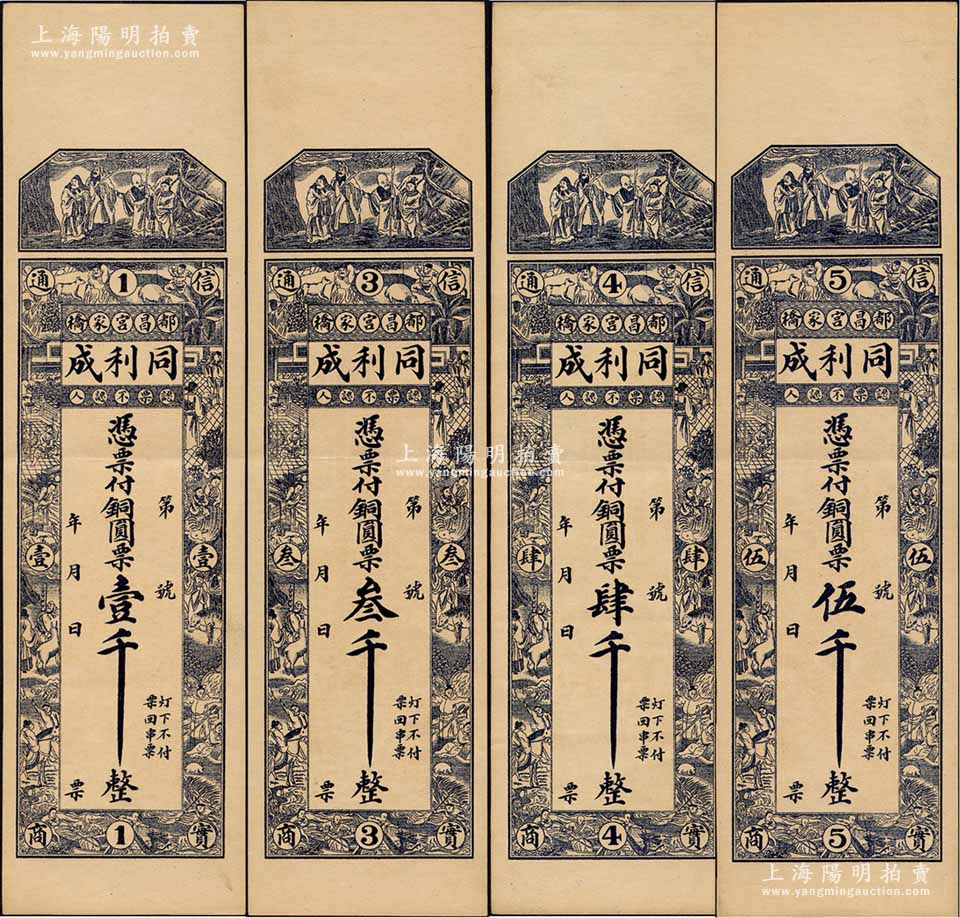 上海陽明拍賣
www.yangmingauction.com
信 1 通
都昌宮家橋
同利成
認票不認人
第 號
憑票付銅圓票壹千整
年 月 日 票
灯下不付
票回串票
壹 壹
實 1 商
信 3 通
都昌宮家橋
同利成
認票不認人
第 號
憑票付銅圓票叁千整
年 月 日 票
灯下不付
票回串票
叁 叁
實 3 商
信 4 通
都昌宮家橋
同利成
認票不認人
第 號
憑票付銅圓票肆千整
年 月 日 票
灯下不付
票回串票
肆 肆
實 4 商
信 5 通
都昌宮家橋
同利成
認票不認人
第 號
憑票付銅圓票伍千整
年 月 日 票
灯下不付
票回串票
伍 伍
實 5 商
上海陽明拍賣
www.yangmingauction.com
上海陽明拍賣
www.yangmingauction.com